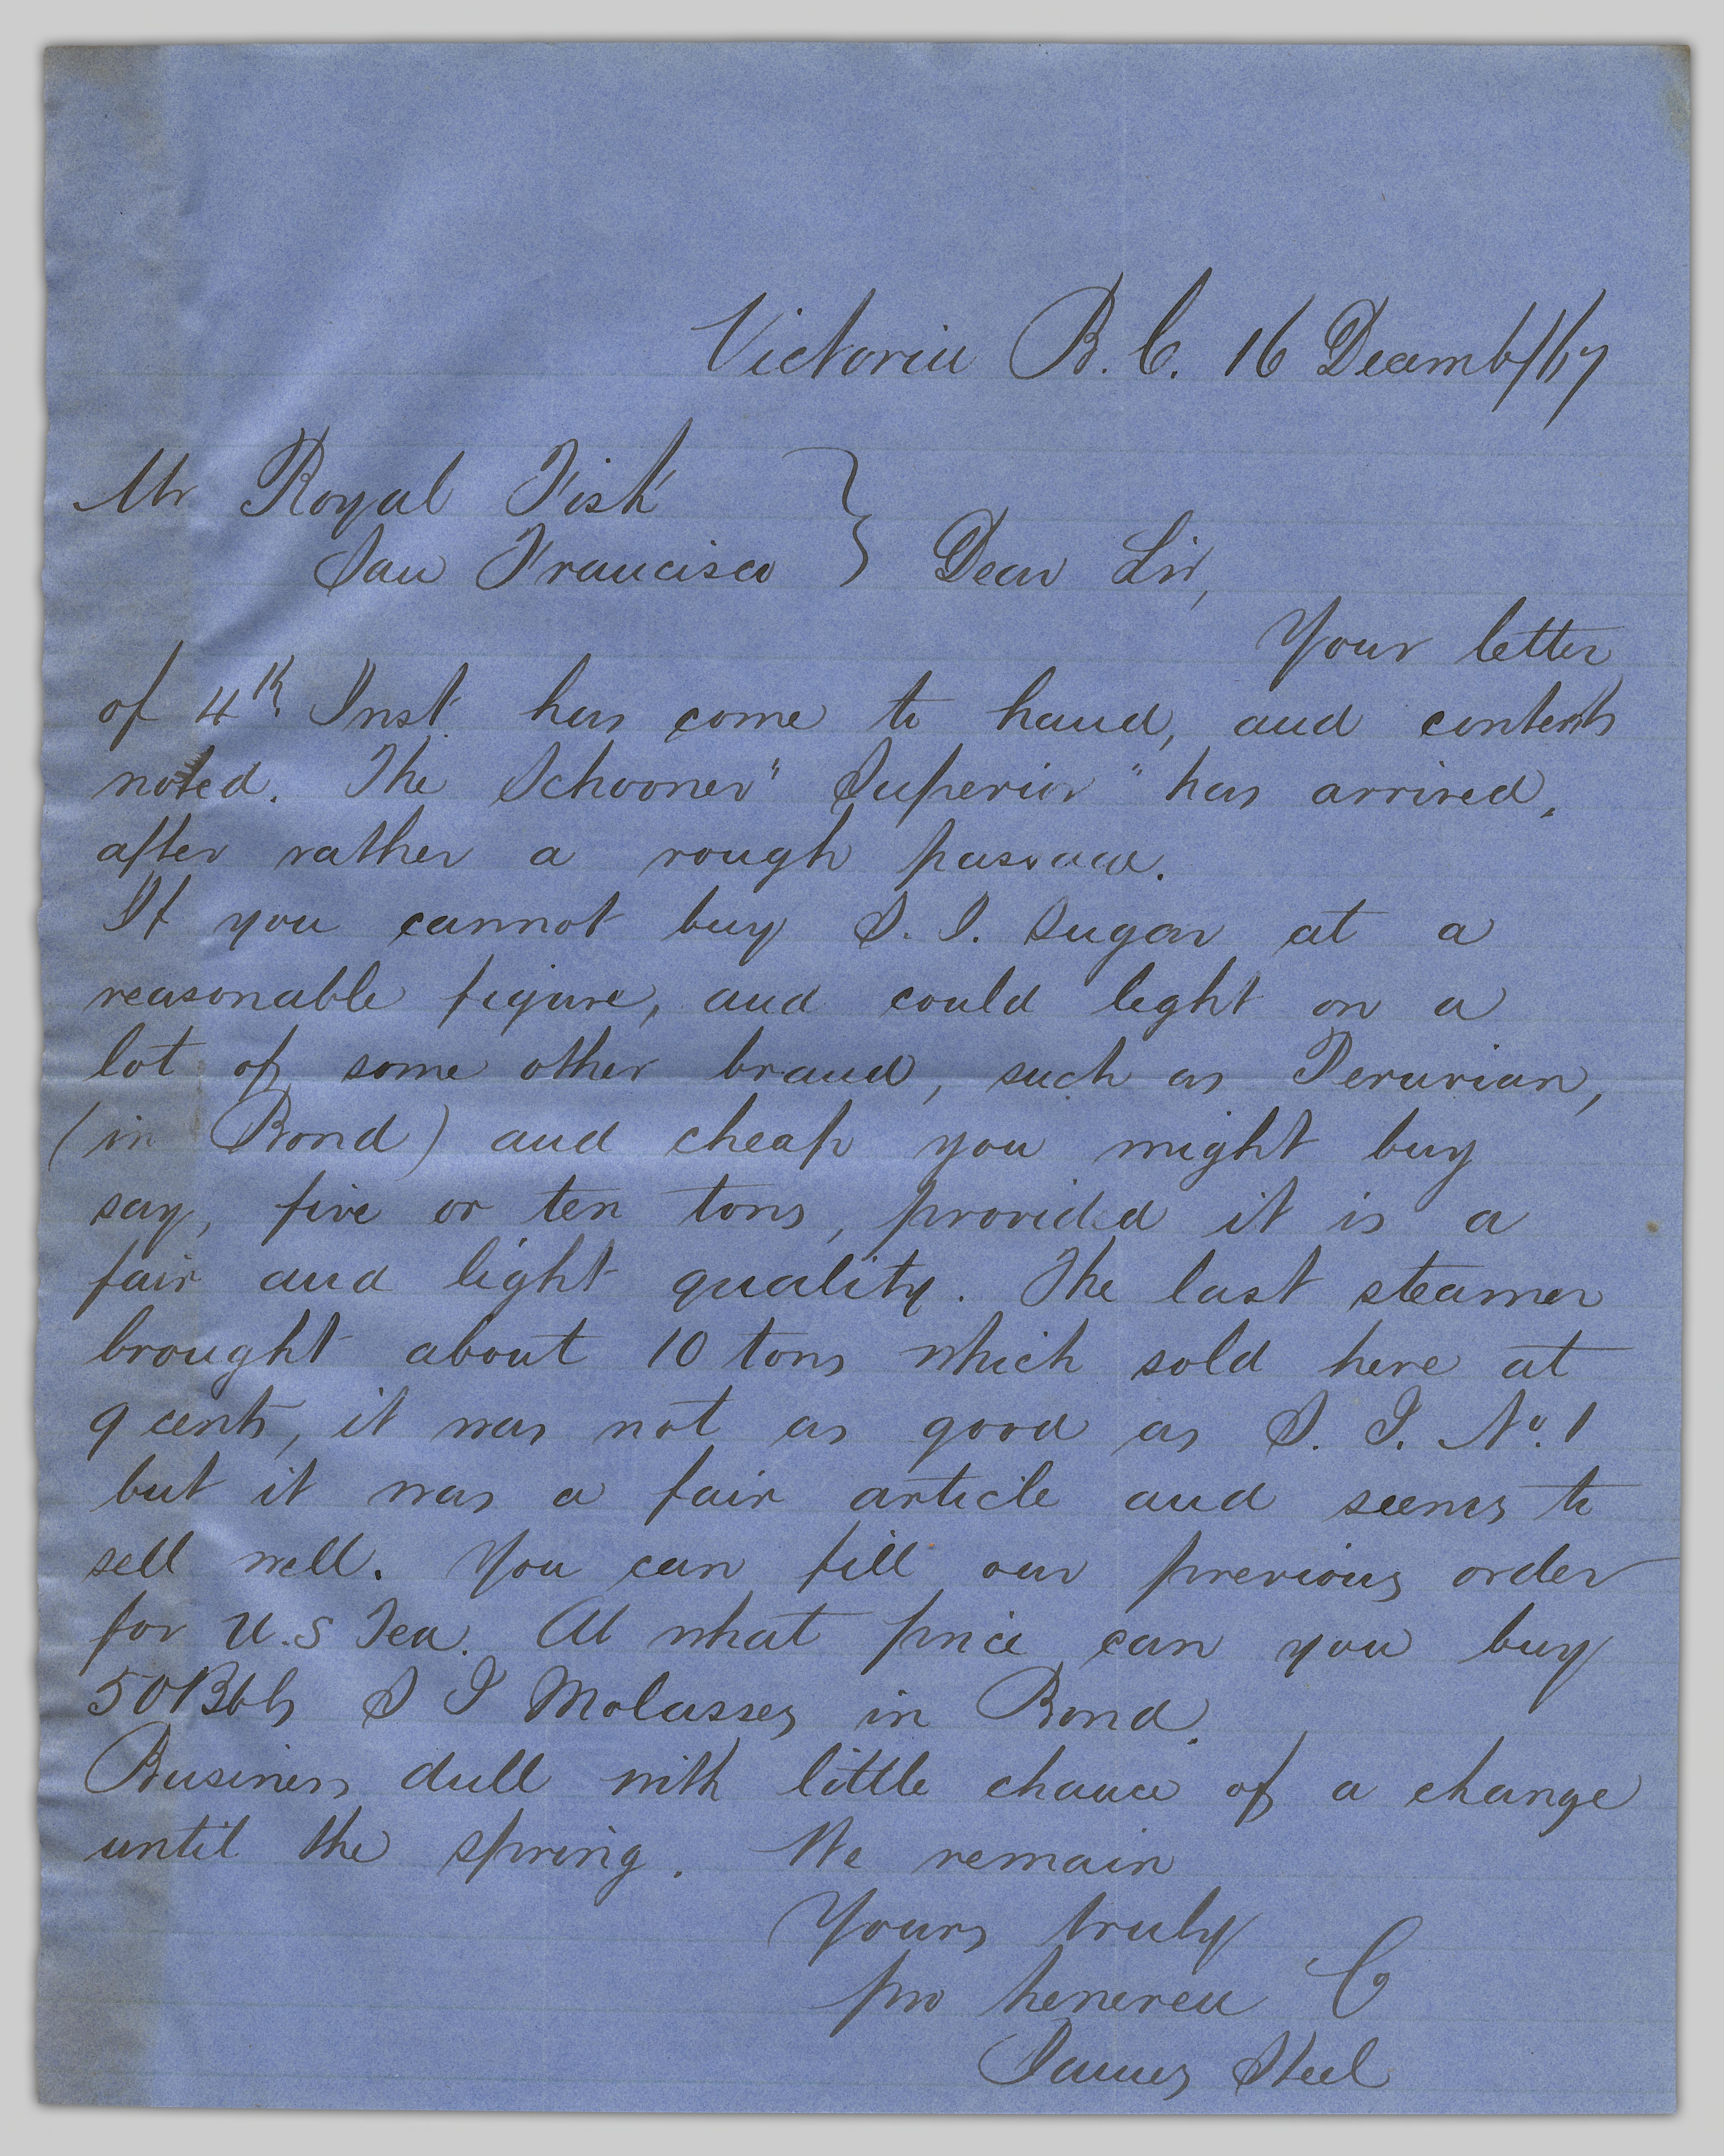 Victoria B.C. 16 Decemb/67
Mr Royal Fisk
San Francisco } Dear Sir,
Your letter
of 4th Inst has come to hand, and contents
noted. The Schooner "Superior" has arrived,
after rather a rough passage.
If you cannot buy S. I. Sugar at a
reasonable figure, and could light on a
lot of some other brand, such as Peruvian,
(in Bond) and cheap you might buy
say, five or ten tons, provided it is a
fair and light quality. The last steamer
brought about 10 tons which sold here at
9 cents, it was not as good as S. I. No. 1
but it was a fair article and seems to
sell well. You can fill our previous order
for U.S Tea. At what price can you buy
50 Bbls S I Molasses in Bond.
Business dull with little chance of a change
until the spring. We remain
Yours truly
pro Co
James Steel